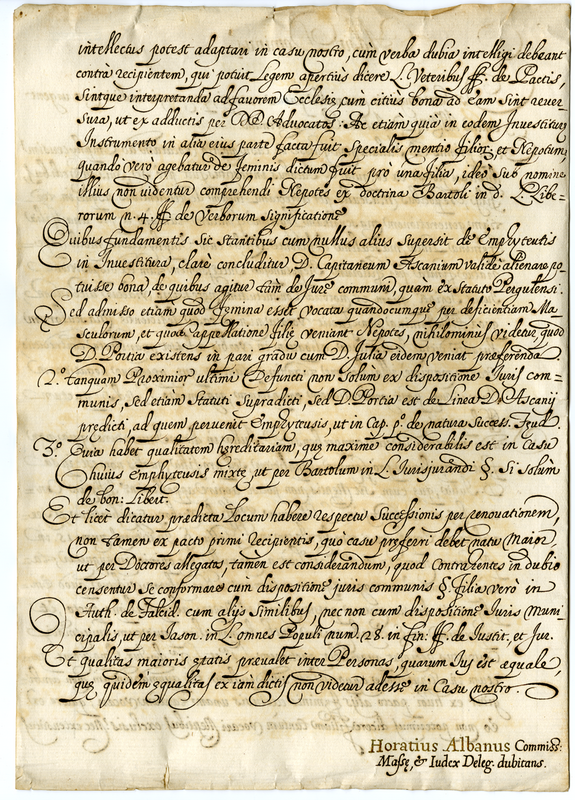 intellectus potest adaptari in casu nostro, cum verba dubia intelligi debeant
contra recipientem, qui potuit Legem apertius dicere L. Veteribus ff. de Pactis,
sintque interpretanda ad favorem Ecclesię cum citius bona ad eam sint rever
sura, ut ex adductis per DD. Advocatos: Ac etiam quia in eodem Investiturę
Instrumento in alia eius parte facta fuit specialis mentio filior. et Nepotum
quando verò agebatur de feminis dictum fuit pro una filia, ideo sub nomine
illius non videntur comprehendi Nepotes ex doctrina Bartoli in d. L. Libe-
rorum n. 4. ff. de Verborum significatione
Quibus fundamentis sic stantibus cum nullus alius supersit de Emphyteutis
in Investitura, clarè concluditur, D. Capitaneum Ascanium validè alienare po
tuisse bona, de quibus agitur tàm de Jure communi, quam ex statuto Pergulensi.
Sed admisso etiam quod femina esset vocata quandocumque per deficientiam Ma
sculorum, et quod appellatione filię veniant Nepotes, nihilominus videtur quod
D. Portia existens in pari gradu cum D. Julia eidem veniat pręferenda
2.º tanquam Proximior ultimi Defuncti non solùm ex dispositione Iuris com-
munis, sed etiam Statuti supradicti, sed D. Portia est de Linea D. Ascanij
prędicti, ad quem pervenit Emphyteusis, ut in Cap. p.º de natura Success. Feud.
3.º Quia habet qualitatem hęreditariam, quę maximè considerabilis est in Casu
huius emphyteusis mixtę, ut per Bartolum in L. Iurisjurandi §. Si Solùm
de bon: Libert.
Et licèt dicatur prædicta Locum habere respectu Successionis per renovationem,
non tamen ex pacto primi Recipientis, quo casu pręferri debet natu maior
ut per Doctores allegatos, tamen est considerandum, quod contrahentes in dubio
censentur se conformare cum dispositione juris communis §. filia verò in
Auth. de Falcid. cum alijs similibus, nec non cum dispositione Iuris Muni
cipalis, ut per Iason. in L. omnes Populi num. 28. in fin. ff. de Iustit. et Jur.
Et qualitas maioris ętatis prævalet inter Personas, quarum Ius est æquale,
quę quidem ęqualitas ex iam dictis non videtur adesse in Casu nostro.
Horatius Albanus Commiss:
Massę, & Iudex Deleg. dubitans.